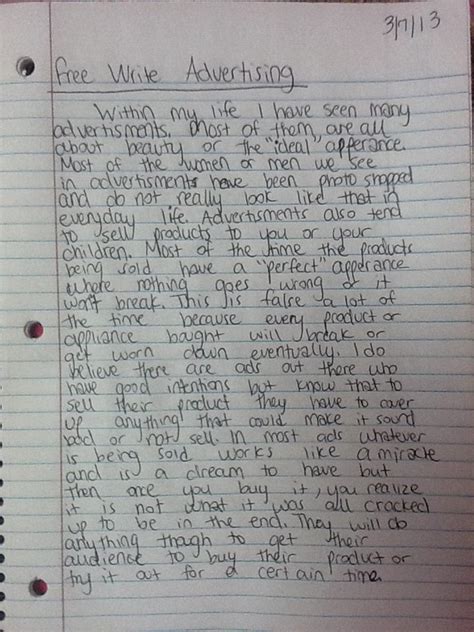 3/7/13
Free Write Advertising
Within my life I have seen many
advertisments. Most of them are all
about beauty or the "ideal" apperance.
Most of the women or men we see
in advertisments have been photo shopped
and do not really look like that in
everyday life. Advertisments also tend
to sell products to you or your
children. Most of the time the products
being sold have a "perfect" apperance
where nothing goes wrong or it
won't break. This is false a lot of
the time because every product or
appliance bought will break or
get worn down eventually. I do
believe there are ads out there who
have good intentions but know that to
sell their product they have to cover
up anything that could make it sound
bad or not sell. In most ads whatever
is being sold works like a miracle
and is a dream to have but
then once you buy it, you realize
it is not what it was all cracked
up to be in the end. They will do
anything though to get their
audience to buy their product or
try it out for a certain time.